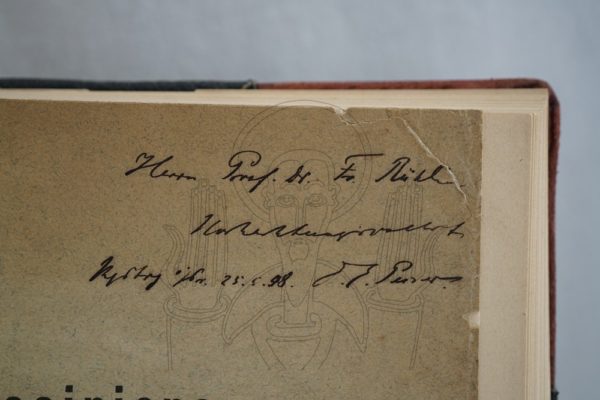 Herrn Prof. Dr. Fr. Rühl
Hochachtungsvollst
Kgsbrg i/Pr. 25.5.98. F. E. Peiser.